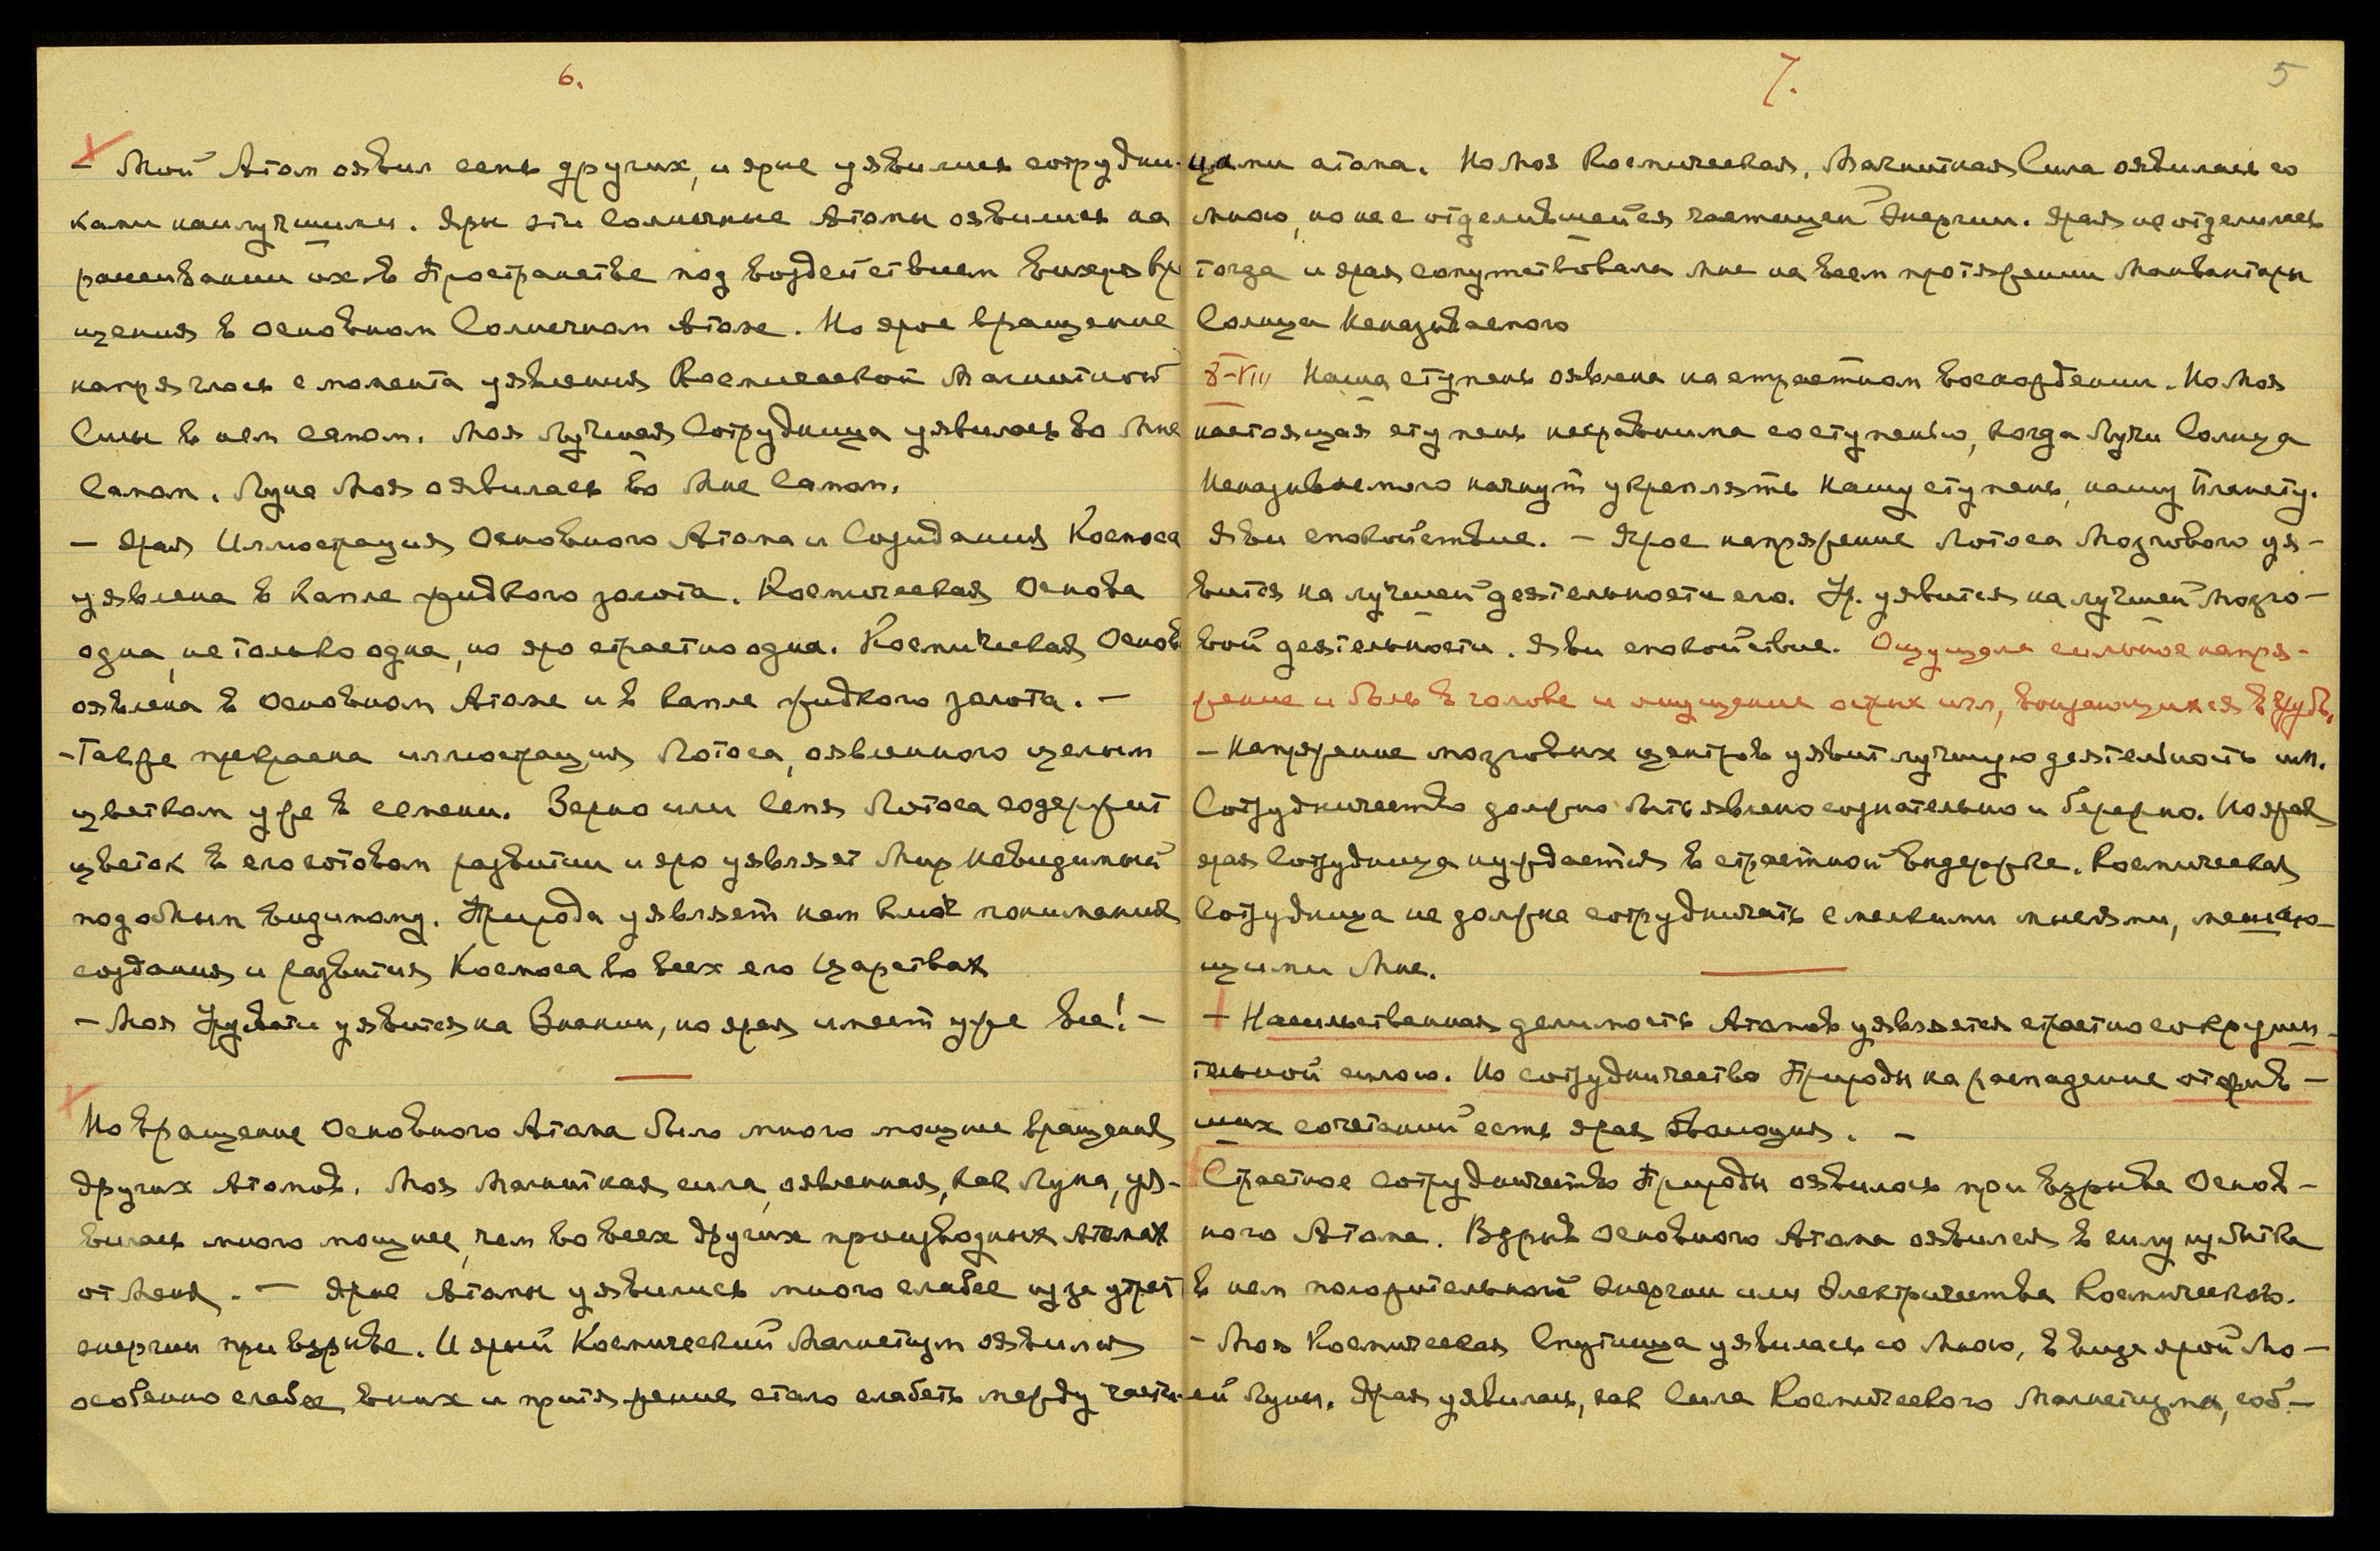 6.
– Мой Атом оявил семь других, и ярые уявились сотрудни-
ками наилучшими. Яры эти Солнечные Атомы оявились на
рассеивании их в Пространстве под воздействием вихря вра
щения в основном Солнечном Атоме. Но ярое вращение
напряглось с момента уявления Космической Магнитной
Силы в нем самом. Моя Лучшая Сотрудница уявилась во Мне
Самом. Луна Моя оявилась во Мне Самом.
– Ярая Иллюстрация Основного Атома и Созидания Космоса
уявлена в капле жидкого золота. Космическая Основа
одна, не только одна, но яро страстно одна. Космическая Основ
оявлена в основном Атоме и в капле жидкого золота. –
– Также прекрасна иллюстрация Лотоса, оявленного целым
цветком уже в семени. Зерно или Семя Лотоса содержит
цветок в его готовом развитии и яро уявляет Мир невидимый
подобным видимому. Природа уявляет нам ключ понимания
создания и развития Космоса во всех его царствах
– Моя Урувати уявится на Знании, но ярая имеет уже все! –
Но вращение Основного Атома было много мощнее вращения
других Атомов. Моя Магнитная сила, оявленная, как Луна, уя-
вилась много мощнее, чем во всех других производных Атомах
от Меня. – Ярые Атомы уявились много слабее из за утрат
энергии при взрыве. И ярый Космический Магнетизм оявился
особенно слабо в них и притяжение стало слабеть между части-
7.
5
цами атома. Но Моя Космическая, Магнитная Сила оявилась со
мною, но не с отделившейся частицей Энергии. Ярая не отделилась
тогда и ярая сопутствовала мне на всем протяжении Манвантары
Солнца Неназываемого
8-VIII Наша ступень оявлена на страстном восхождении. Но Моя
настоящая ступень несравнима со ступенью, когда Лучи Солнца
Неназываемого начнут укреплять нашу ступень, нашу Планету.
Яви спокойствие. – Ярое напряжение Лотоса Мозгового уя-
вится на лучшей деятельности его. Ур. уявится на лучшей мозго-
вой деятельности. Яви спокойствие. Ощущала сильное напря-
жение и боль в голове и ощущение острых игл, вонзающихся в грудь.
– Напряжение мозговых центров уявит лучшую деятельность им.
Сотрудничество должно быть явлено сознательно и бережно. Но
ярая Сотрудница нуждается в страстной выдержке. Космическая
Сотрудница не должна сотрудничать с мелкими мыслями, мешаю-
щими Мне.
– Насильственная делимость Атомов уявляется страстно сокруши-
тельной силою. Но сотрудничество Природы на распадение отжив-
ших сочетаний есть ярая эволюция. –
Страстное сотрудничество Природы оявилось при взрыве Основ-
ного Атома. Взрыв Основного Атома оявился в силу избытка
в нем положительной энергии или Электричества Космического.
– Моя Космическая Спутница уявилась со Мною, в виде ярой Мо-
ей Луны. Ярая уявилась, как Сила Космического Магнетизма, соб-